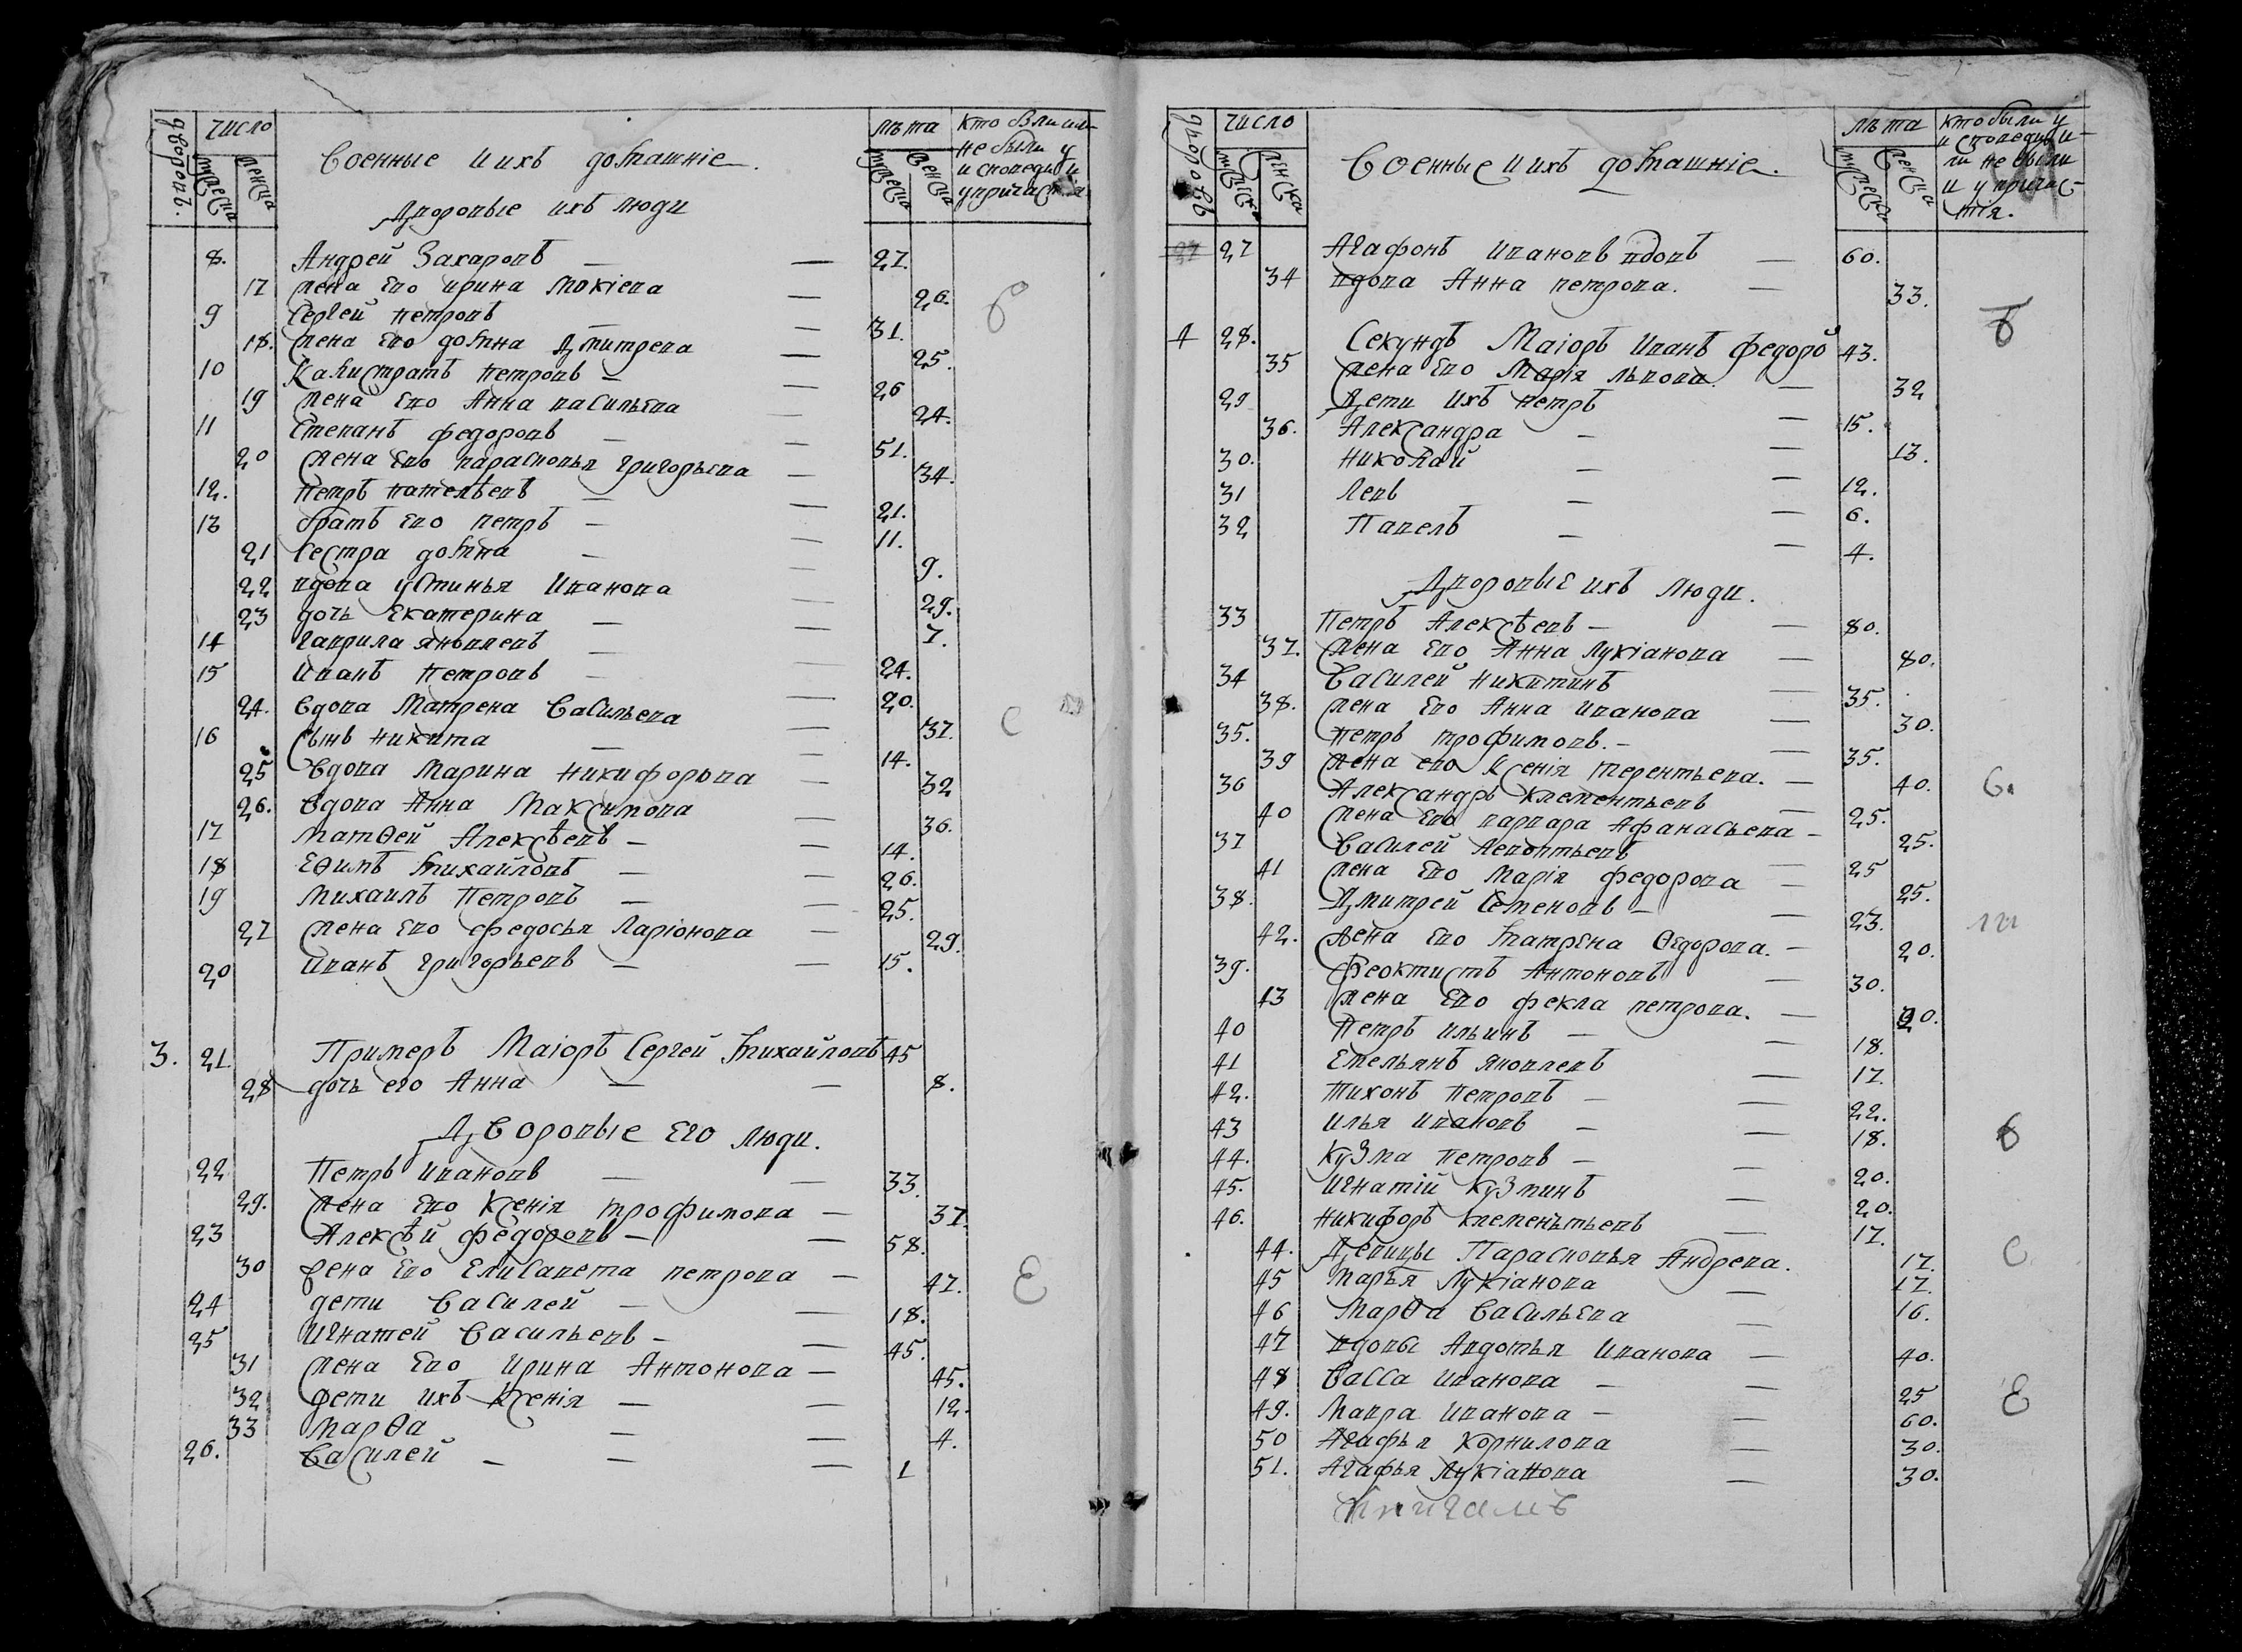 дворовъ. число мужеска женска Военные и ихъ домашніе. лѣта мужеска женска кто были или не были у исповеди и у причастія
Дворовые ихъ люди
8. Андрей Захаровъ — 27.
17 жена ево Ирина Мокіева — 26.
9 Сергей Петровъ — 31.
18. жена ево Домна Дмитрева — 25.
10 Калистратъ Петровъ — 26
19 жена ево Анна Васильева — 24.
11 Степанъ Федоровъ — 51.
20 жена ево Парасковья Григорьева — 34.
12. Петръ — 21.
13 братъ ево Петръ — 11.
21 Сестра Домна — 9.
22 вдова Устинья Иванова — 29.
23 дочь Екатерина — 7.
14 Гаврила Яковлевъ — 24.
15 Иванъ Петровъ — 20.
24. Вдова Матрена Васильева — 37.
16 Сынъ Никита — 14.
25 Вдова Марина Никифорова — 32
26. Вдова Анна Максимова — 36.
17 Матѳей Алексѣевъ — 14.
18 Еѳимъ Михайловъ — 26.
19 Михаилъ Петровъ — 25.
27 жена ево Федосья Ларіонова — 29.
20 Иванъ Григорьевъ — 15.
3. 21. Примеръ Маіоръ Сергей Михайловъ 45
28 дочь его Анна — 8.
Дворовые его люди.
22 Петръ Ивановъ — 33.
29. жена ево Ксенія Трофимова — 37.
23 Алексѣй Федоровъ — 58.
30 жена ево Елисавета Петрова — 47.
24 дети Василей — 18.
25 Игнатей Васильевъ — 45.
31 жена ево Ирина Антонова — 45.
32 дети ихъ Ксенія — 12.
33 Марѳа — 4.
26. Василей — 1
дворовъ число мужеска женска Военные и ихъ домашніе. лѣта мужеска женска кто были у исповеди или не были и у причастія.
27 Агафонъ Ивановъ вдовъ — 60.
34 вдова Анна Петрова. — 33.
4 28. Секундъ Маіоръ Иванъ Федоро 43.
35 жена ево Марія Львова. — 32
29 Дети ихъ Петръ — 15.
36. Александра — 13.
30. Николай — 12.
31 Левъ — 6.
32 Павелъ — 4.
Дворовые ихъ люди.
33 Петръ Алексѣевъ — 80.
37. жена ево Анна Лукіанова — 80.
34 Василей Никитинъ — 35.
38. жена ево Анна Иванова — 30.
35. Петръ Трофимовъ. — 35.
39 жена ево Ксенія Терентьева. — 40.
36 Александръ Клементьевъ — 25.
40 жена ево Варвара Афанасьева — 25.
37 Василей Леонтьевъ 25
41 жена ево Марія Федорова — 25.
38. Дмитрей Семеновъ — 23.
42. жена ево Матрена Ѳедорова. — 20.
39. Феоктистъ Антоновъ — 30.
43 жена ево Фекла Петрова. — 20.
40 Петръ Ильинъ — 18.
41 Емельянъ Яковлевъ — 17.
42. Тихонъ Петровъ — 22.
43 Илья Ивановъ — 18.
44. Кузма Петровъ — 20.
45. Игнатій Кузминъ — 20.
46. Никифоръ Клеменьтьевъ — 17.
44. Девицы Парасковья Андрева. 17.
45 Марья Лукіанова — 17.
46 Марѳа Васильева — 16.
47 вдовы Авдотья Иванова — 40.
48 Васса Иванова — 25
49. Мавра Иванова — 60.
50 Агафья Корнилова — 30.
51. Агафья Лукіанова — 30.